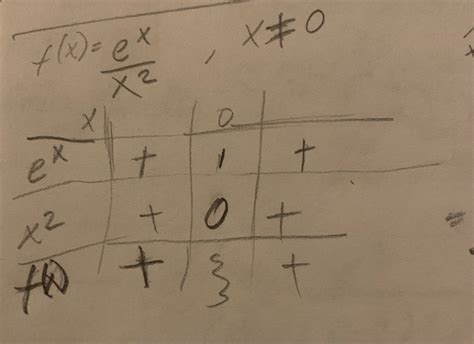 f(x) = e^x / x^2 , x ≠ 0
x 0
e^x + 1 +
x^2 + 0 +
f(x) + ⌇ +
=